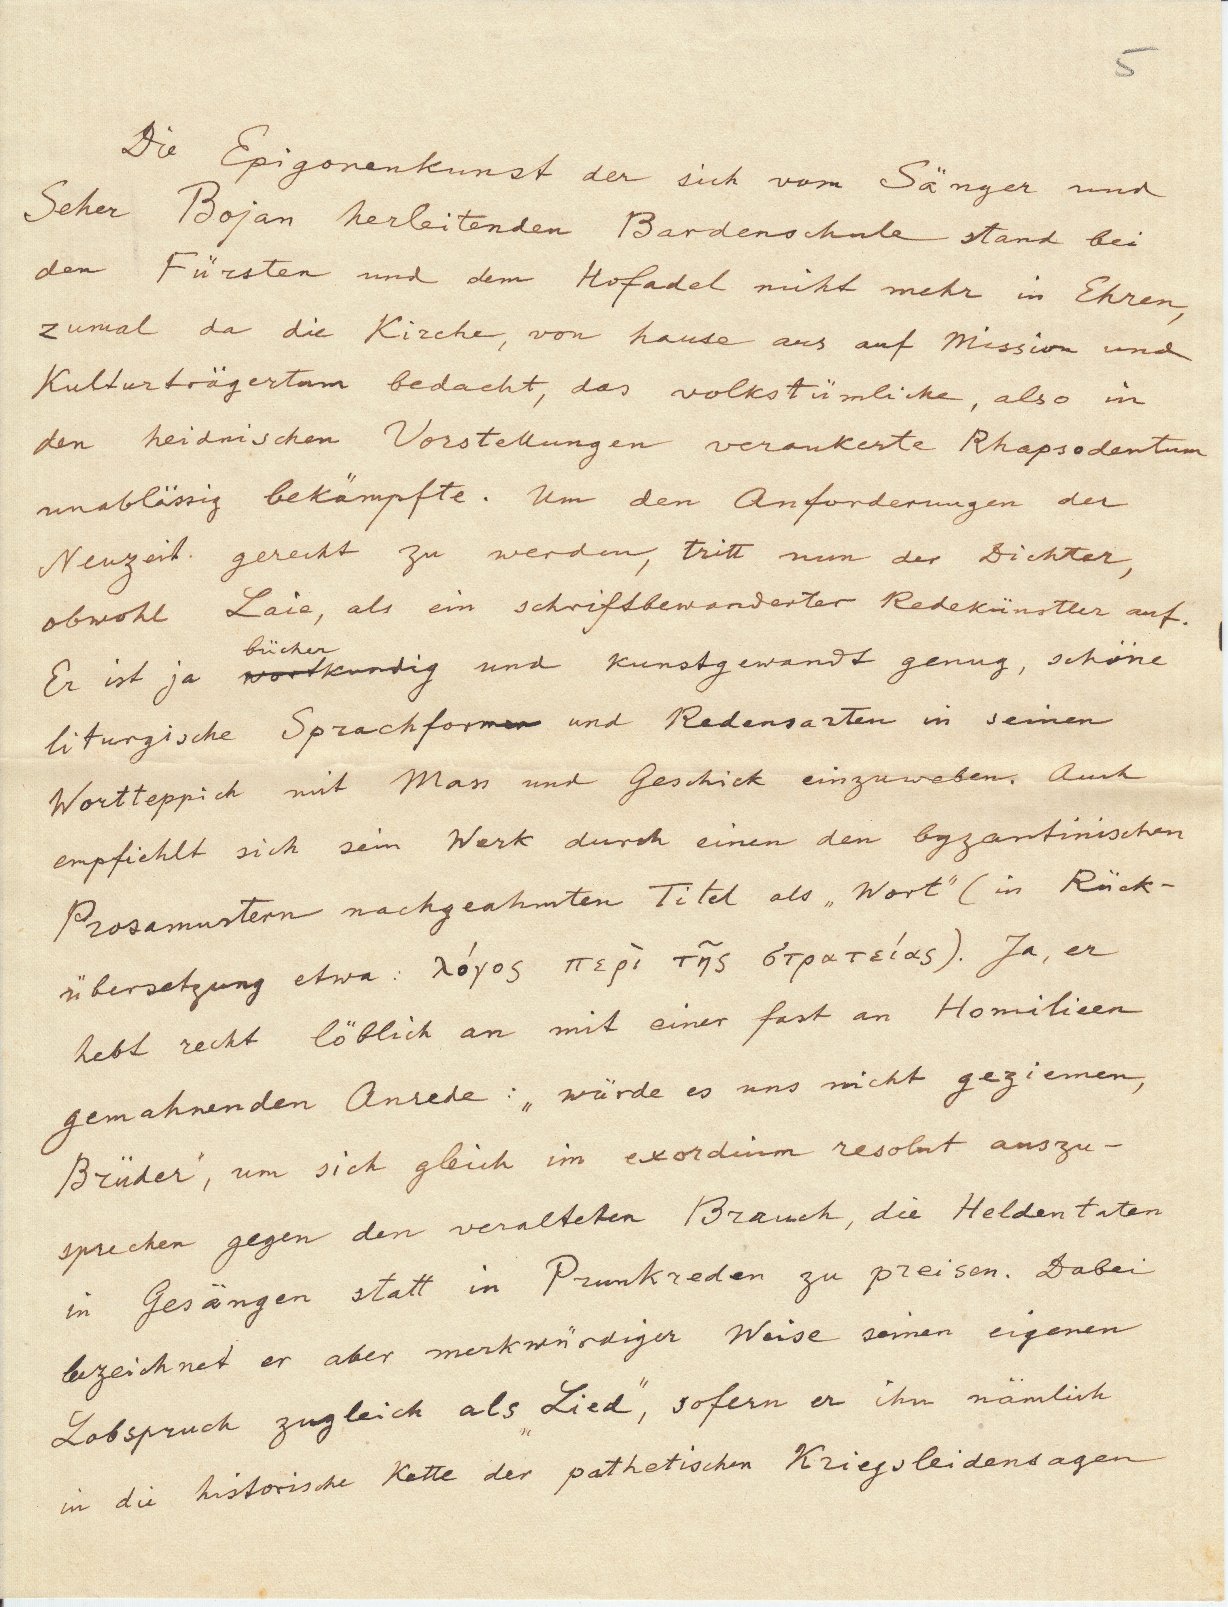 5
Die Epigonenkunst der sich vom Sänger und
Seher Bojan herleitenden Bardenschule stand bei
den Fürsten und dem Hofadel nicht mehr in Ehren,
zumal da die Kirche, von hause aus auf Mission und
Kulturträgertum bedacht, das volkstümliche, also in
den heidnischen Vorstellungen verankerte Rhapsodentum
unablässig bekämpfte. Um den Anforderungen der
Neuzeit gerecht zu werden, tritt nun der Dichter,
obwohl Laie, als ein schriftbewanderter Redekünstler auf.
bücher
Er ist ja wortkundig und kunstgewandt genug, schöne
liturgische Sprachformen und Redensarten in seinen
Wortteppich mit Mass und Geschick einzuweben. Auch
empfiehlt sich sein Werk durch einen den byzantinischen
Prosamustern nachgeahmten Titel als „Wort" (in Rück-
übersetzung etwa: λόγος περὶ τῆς στρατείας). Ja, er
hebt recht löblich an mit einer fast an Homilieen
gemahnenden Anrede: „würde es uns nicht geziemen,
Brüder", um sich gleich im exordium resolut auszu-
sprechen gegen den veralteten Brauch, die Heldentaten
in Gesängen statt in Prunkreden zu preisen. Dabei
bezeichnet er aber merkwürdiger Weise seinen eigenen
Lobspruch zugleich als „Lied", sofern er ihn nämlich
in die historische Kette der pathetischen Kriegsleidensagen